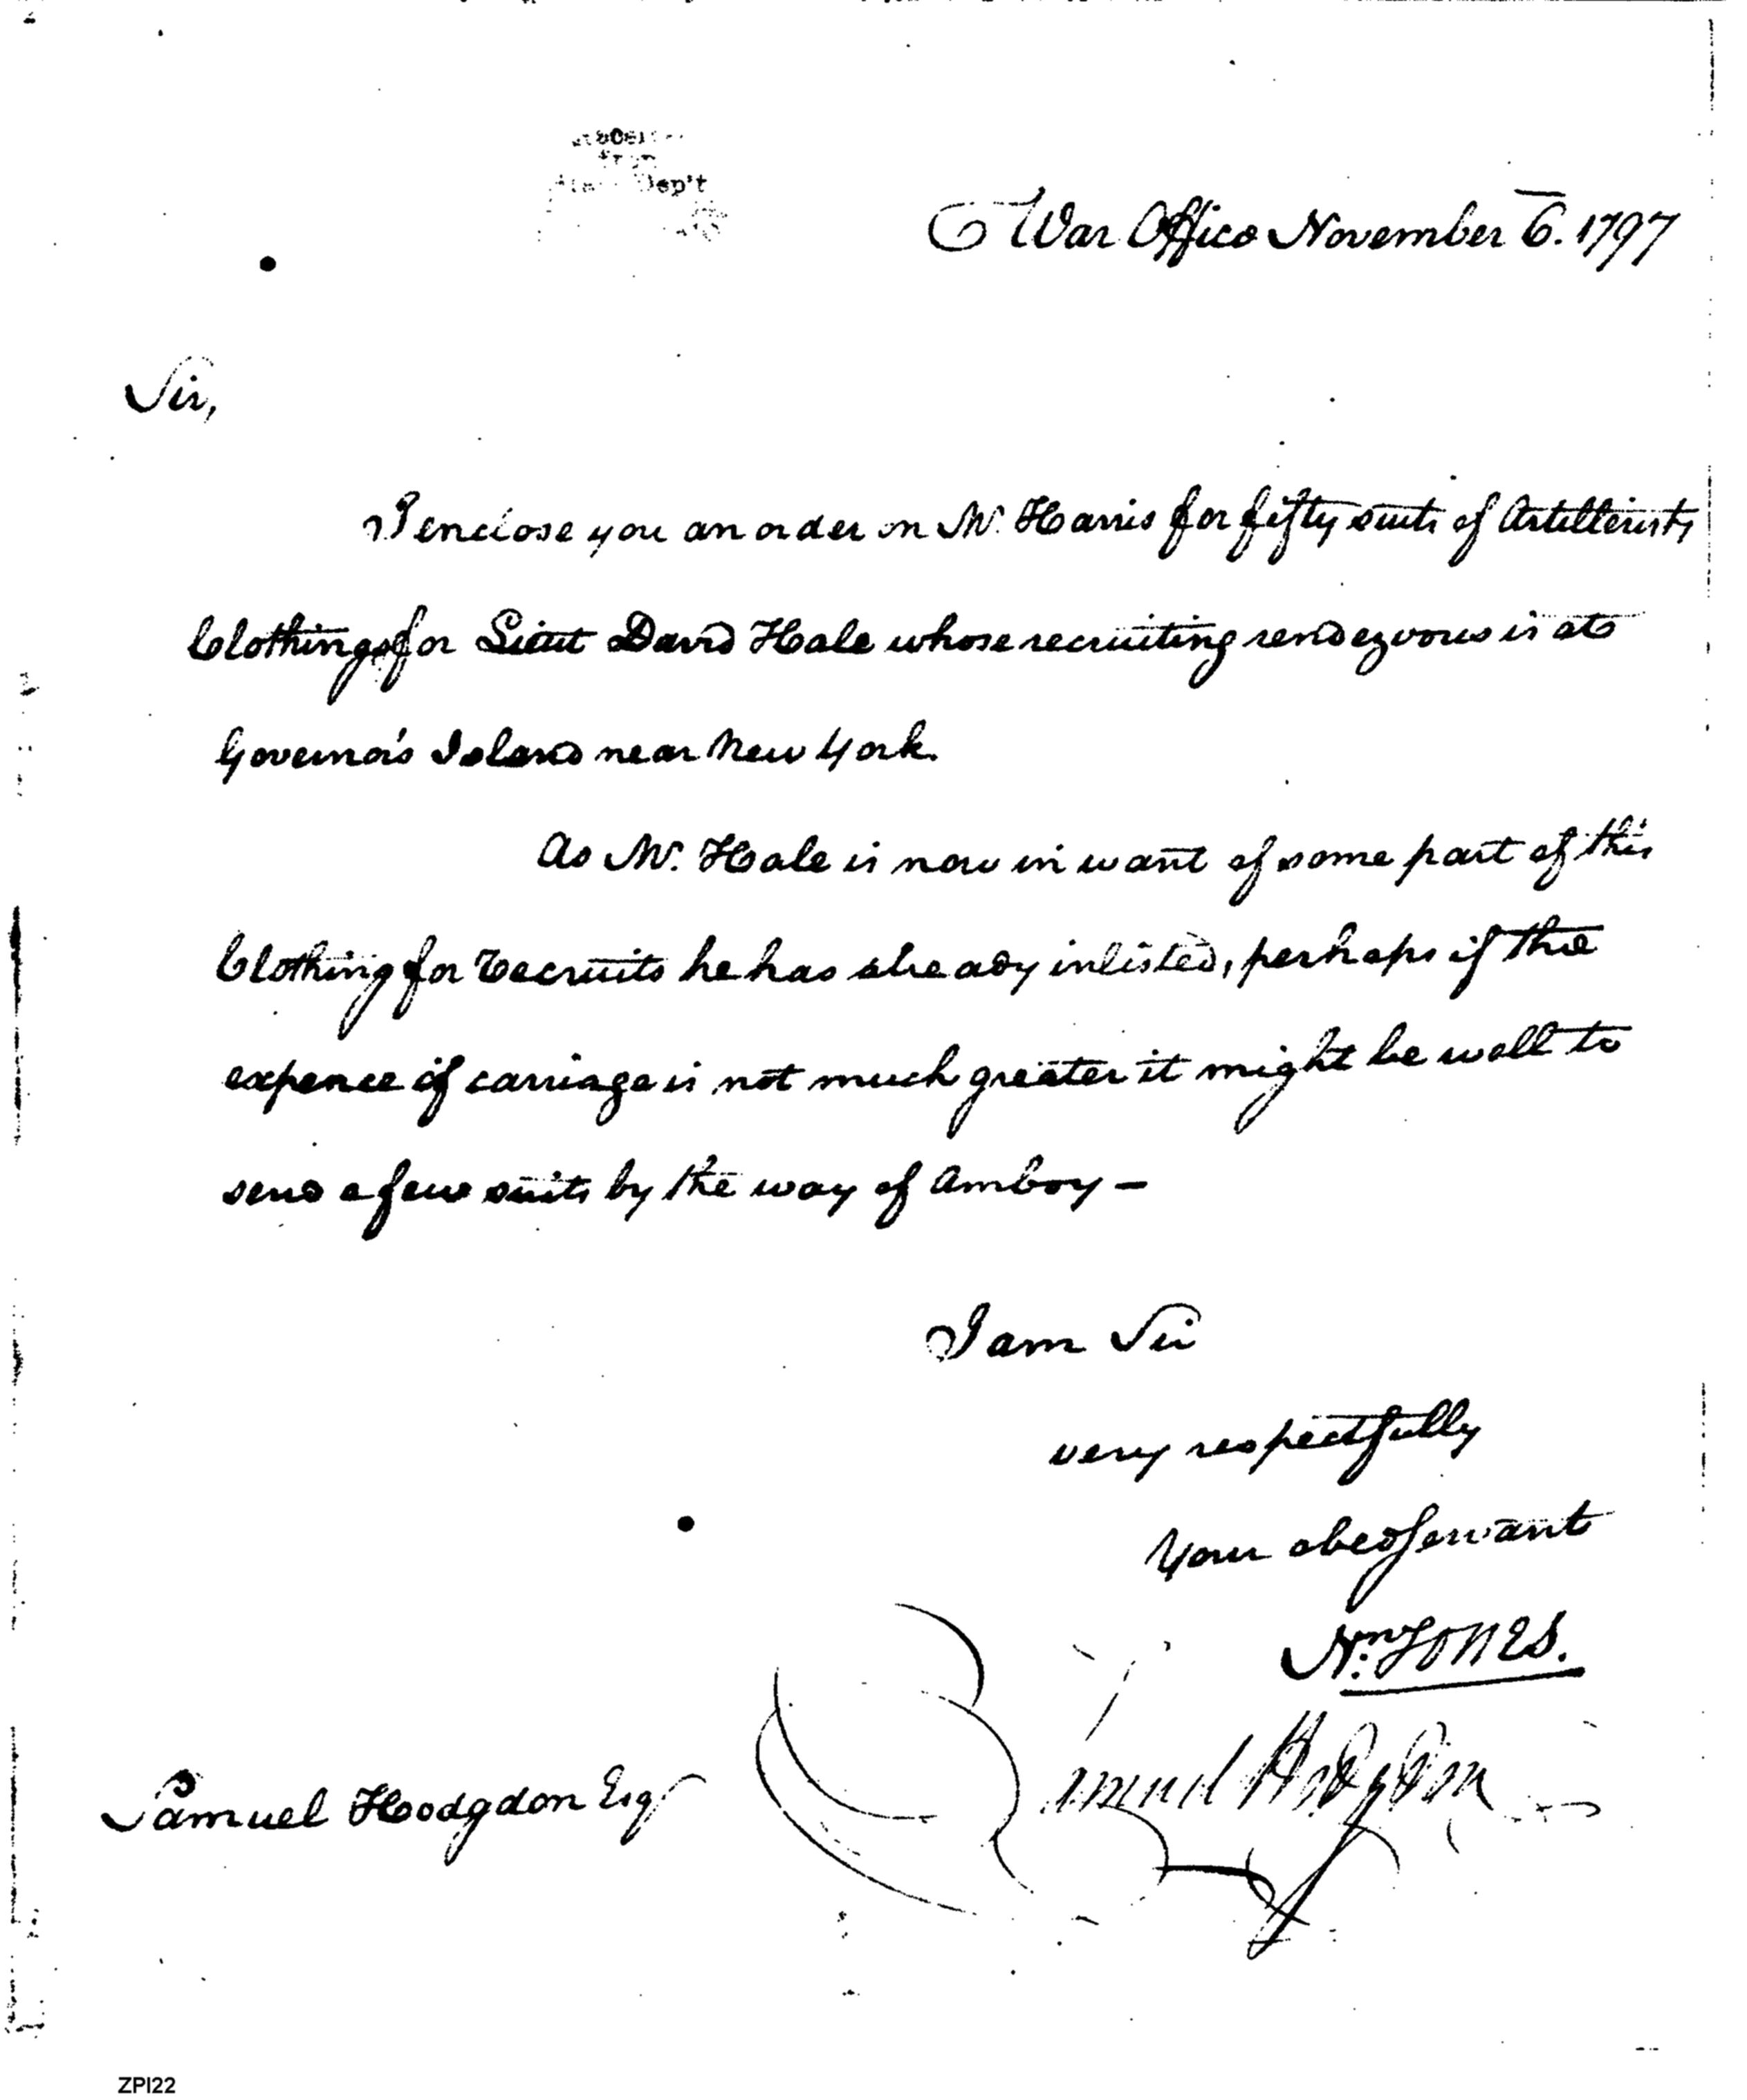 Dep't
War Office November 6. 1797
Sir,
I enclose you an order on Mr. Harris for fifty suits of Artillerists
Clothing for Lieut David Hale whose recruiting rendezvous is at
Governor's Island near New York.
As Mr. Hale is now in want of some part of this
Clothing for Recruits he has already inlisted, perhaps if the
expence of carriage is not much greater it might be well to
send a few suits by the way of Amboy —
I am Sir
very respectfully
Your obed servant
Nn. Jones.
Samuel Hodgdon
Samuel Hoodgdon Esqr
ZPI22